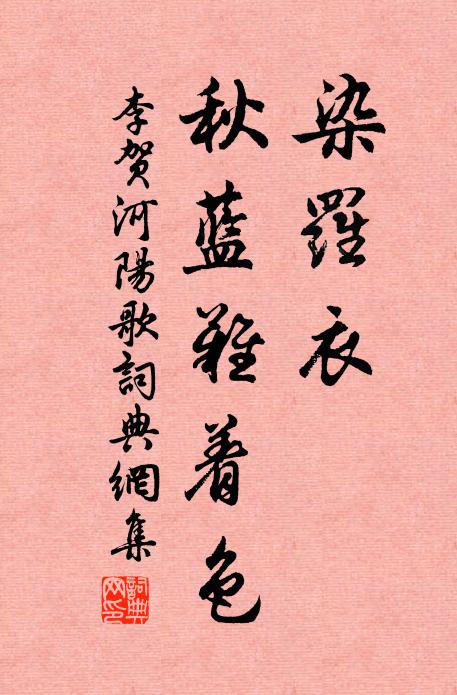 染羅衣
秋藍難着色
李賀河陽歌詞典網集
詞典網印